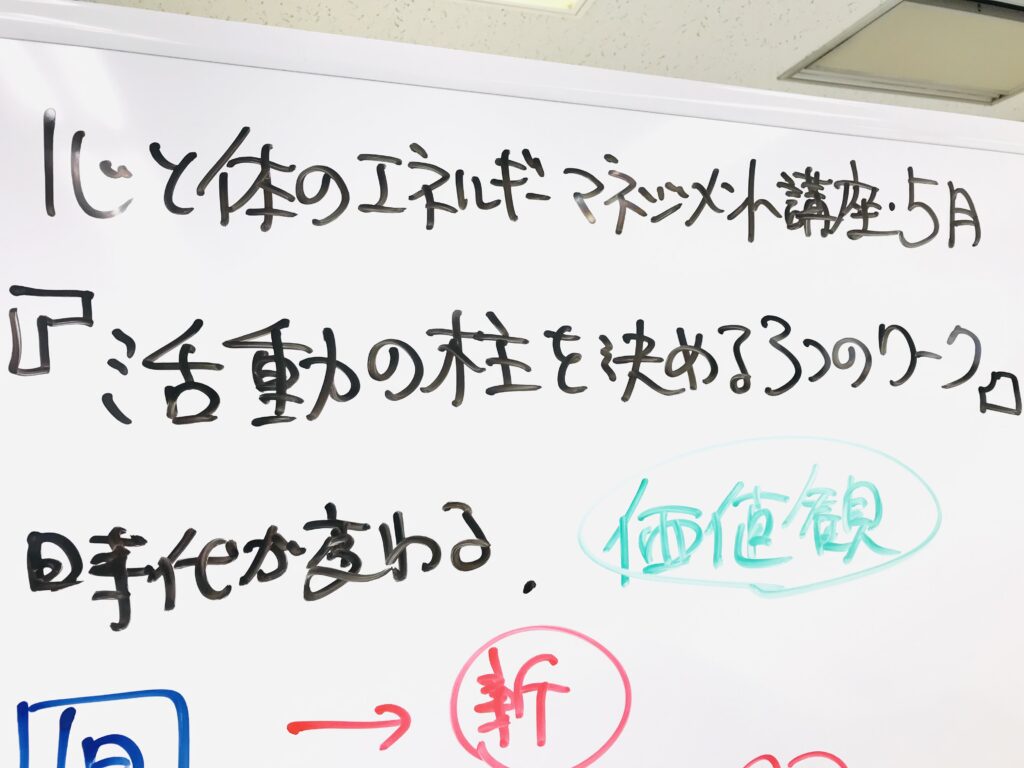 心と体のエネルギーマネジメント講座・5月
『活動の柱を決める3つのワーク』
時代が変わる.
価値観
旧 → 新